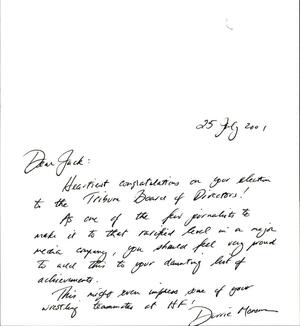 25 July 2001
Dear Jack:
Heartiest congratulations on your election
to the Tribune Board of Directors!
As one of the few journalists to
make it to that rarified level in a major
media company, you should feel very proud
to add this to your daunting list of
achievements.
This might even impress some of your
wrestling teammates at HF!